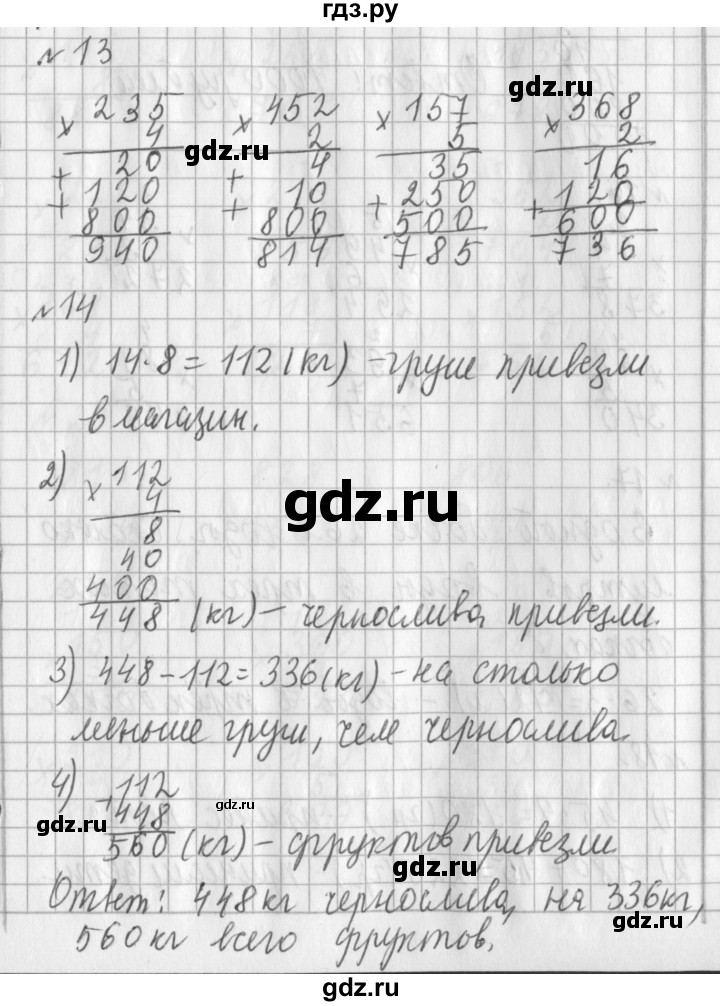 гдз.ру
№ 13
× 235 × 452 × 157 × 368
4 2 5 2
+ 20 + 4 35 16
+ 120 + 10 + 250 + 120
800 800 500 600
940 814 785 736
gdz.ru gdz.ru gdz.ru gdz.ru
№ 14
1) 14·8=112(кг) – груш привезли
в магазин.
2) × 112
4
8
40
400
448 (кг) – чернослива привезли.
gdz.ru
3) 448-112=336(кг) – на столько
меньше груш, чем чернослива.
4) + 112
448
560 (кг) – фруктов привезли
gdz.ru gdz.ru gdz.ru
Ответ: 448кг чернослива, на 336кг,
560кг всего фруктов.
gdz.ru gdz.ru
gdz.ru